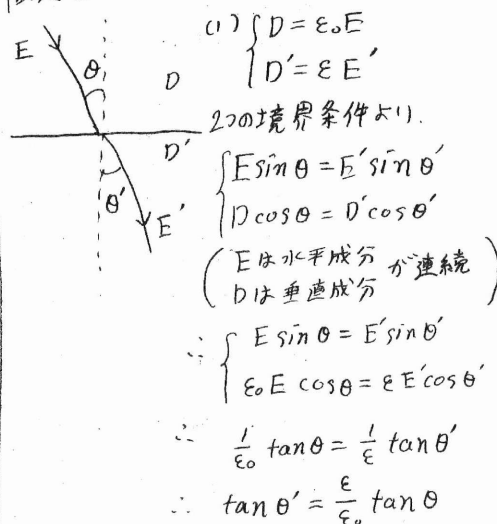 (1) { D = ε₀E
D' = εE'
E
θ
D
D'
θ'
E'
2つの境界条件より.
{ E sinθ = E' sinθ'
D cosθ = D' cosθ'
( Eは水平成分
Dは垂直成分 が連続 )
∴ { E sinθ = E' sinθ'
ε₀E cosθ = εE' cosθ'
∴ 1/ε₀ tanθ = 1/ε tanθ'
∴ tanθ' = ε/ε₀ tanθ